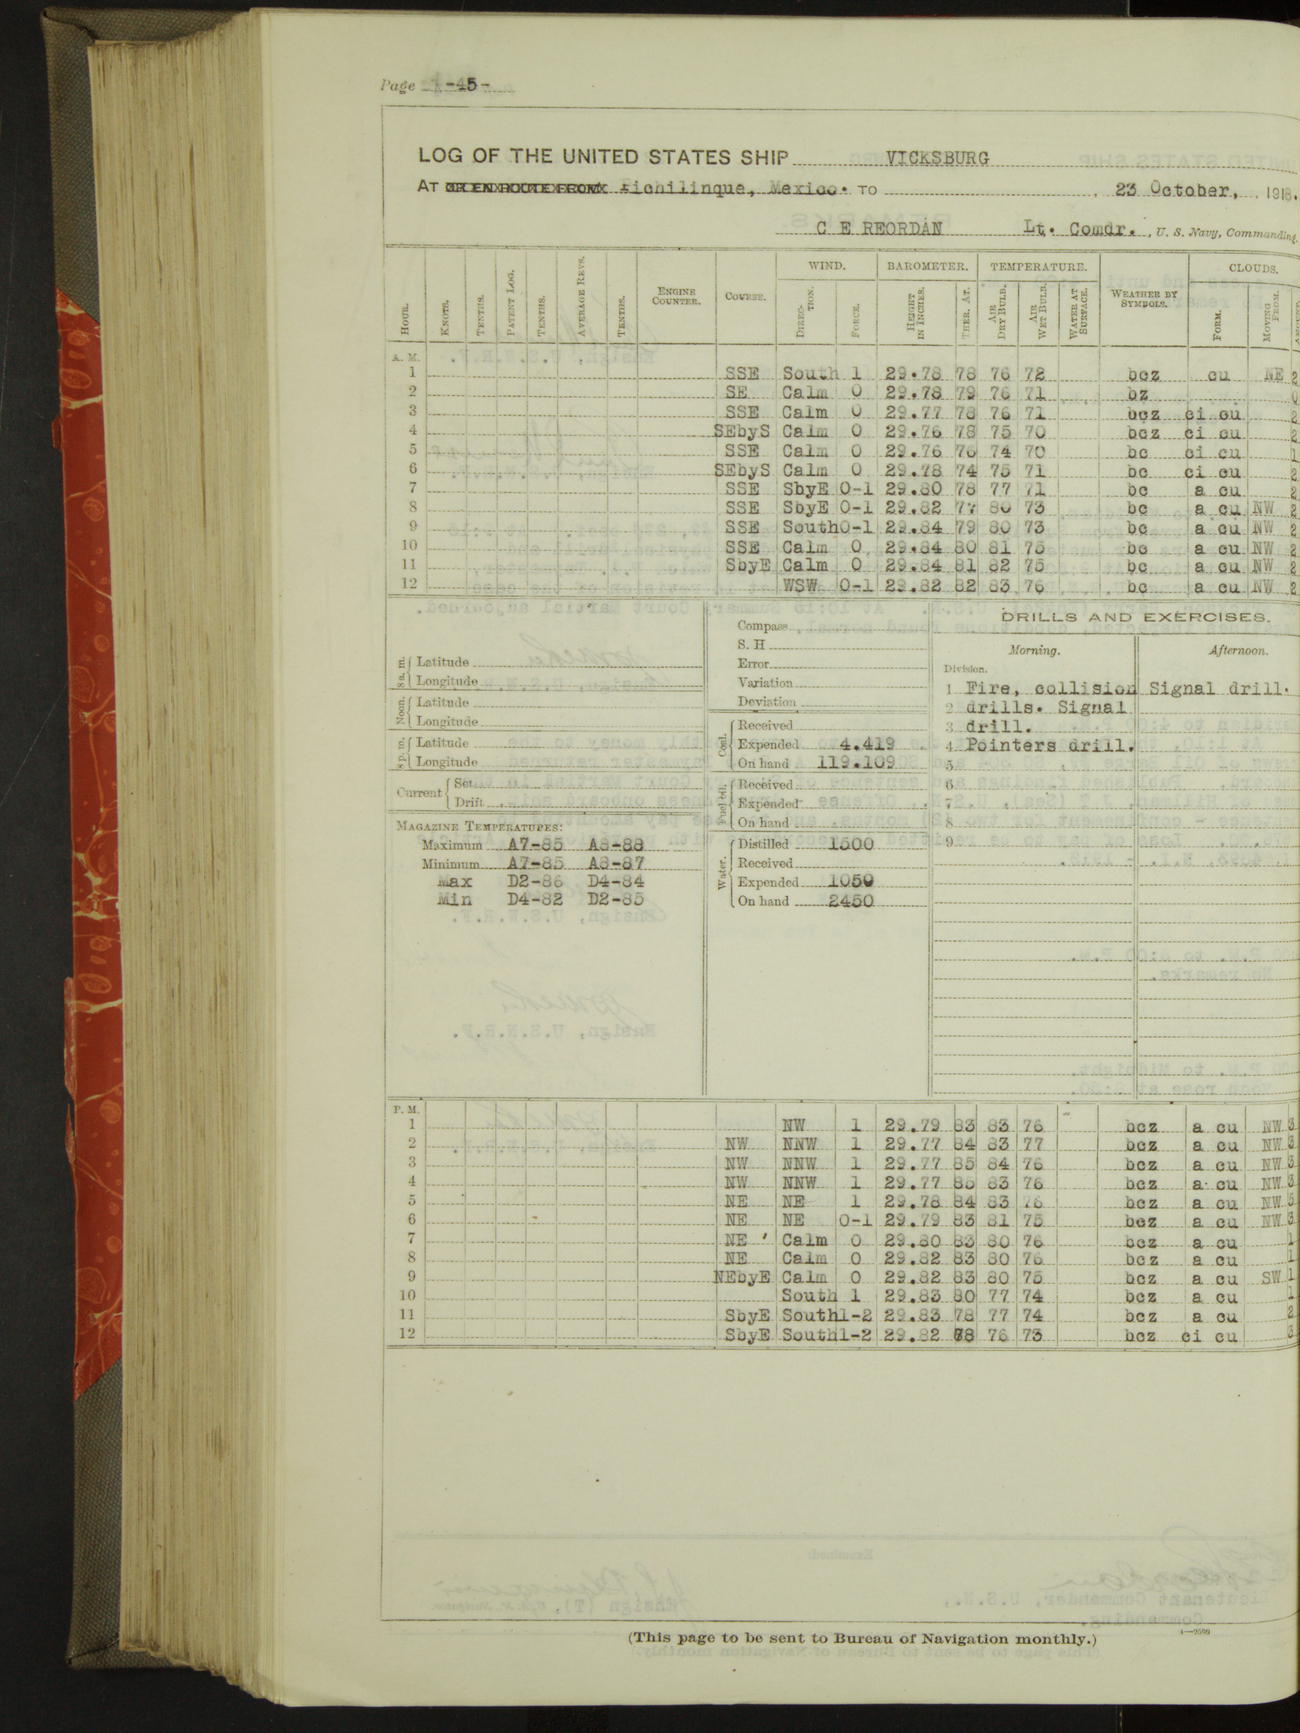 Page -45-
LOG OF THE UNITED STATES SHIP VICKSBURG
AT OR EN ROUTE FROM Pichilinque, Mexico. TO , 23 October, , 1918.
C E REORDAN Lt. Comdr. , U. S. Navy, Commanding.
HOUR. KNOTS. TENTHS. PATENT LOG. TENTHS. AVERAGE REVS. TENTHS. ENGINE COUNTER. COURSE. WIND. DIRECTION. FORCE. BAROMETER. HEIGHT IN INCHES. THER. AT. TEMPERATURE. AIR DRY BULB. AIR WET BULB. WATER AT SURFACE. WEATHER BY SYMBOLS. CLOUDS. FORM. MOVING FROM.
A. M.
1 SSE South 1 29.78 78 76 72 bcz cu NE 2
2 SE Calm 0 29.78 79 76 71 bz 0
3 SSE Calm 0 29.77 78 76 71 bcz ci cu 2
4 SEbyS Calm 0 29.76 78 75 70 bcz ci cu 2
5 SSE Calm 0 29.76 76 74 70 bc ci cu 1
6 SEbyS Calm 0 29.78 74 75 71 bc ci cu 2
7 SSE SbyE 0-1 29.80 78 77 71 bc a cu 2
8 SSE SbyE 0-1 29.82 77 80 73 bc a cu NW 2
9 SSE South 0-1 29.84 79 80 73 bc a cu NW 2
10 SSE Calm 0 29.84 80 81 75 bc a cu NW 2
11 SbyE Calm 0 29.84 81 82 75 bc a cu NW 2
12 WSW 0-1 29.82 82 83 76 bc a cu NW 2
8 a. m. Latitude
Longitude
Noon. Latitude
Longitude
8 p. m. Latitude
Longitude
Current Set
Drift
MAGAZINE TEMPERATURES:
Maximum A7-85 A8-88
Minimum A7-85 A8-87
Max D2-86 D4-84
Min D4-82 D2-85
Compass
S. H
Error
Variation
Deviation
Coal. Received
Expended 4.419
On hand 119.109
Fuel oil. Received
Expended
On hand
Water. Distilled 1500
Received
Expended 1050
On hand 2450
DRILLS AND EXERCISES.
Morning. Afternoon.
Division.
1 Fire, collision Signal drill.
2 drills. Signal
3 drill.
4 Pointers drill.
5
6
7
8
9
P. M.
1 NW 1 29.79 83 83 76 bcz a cu NW 3
2 NW NNW 1 29.77 84 83 77 bcz a cu NW 3
3 NW NNW 1 29.77 85 84 76 bcz a cu NW 3
4 NW NNW 1 29.77 85 83 76 bcz a cu NW 3
5 NE NE 1 29.78 84 83 76 bcz a cu NW 3
6 NE NE 0-1 29.79 83 81 75 bcz a cu NW 3
7 NE Calm 0 29.80 83 80 76 bcz a cu 1
8 NE Calm 0 29.82 83 80 76 bcz a cu 1
9 NEbyE Calm 0 29.82 83 80 75 bcz a cu SW 1
10 South 1 29.83 80 77 74 bcz a cu 1
11 SbyE South 1-2 29.83 78 77 74 bcz a cu 2
12 SbyE South 1-2 29.82 78 76 73 bcz ci cu 3
(This page to be sent to Bureau of Navigation monthly.)